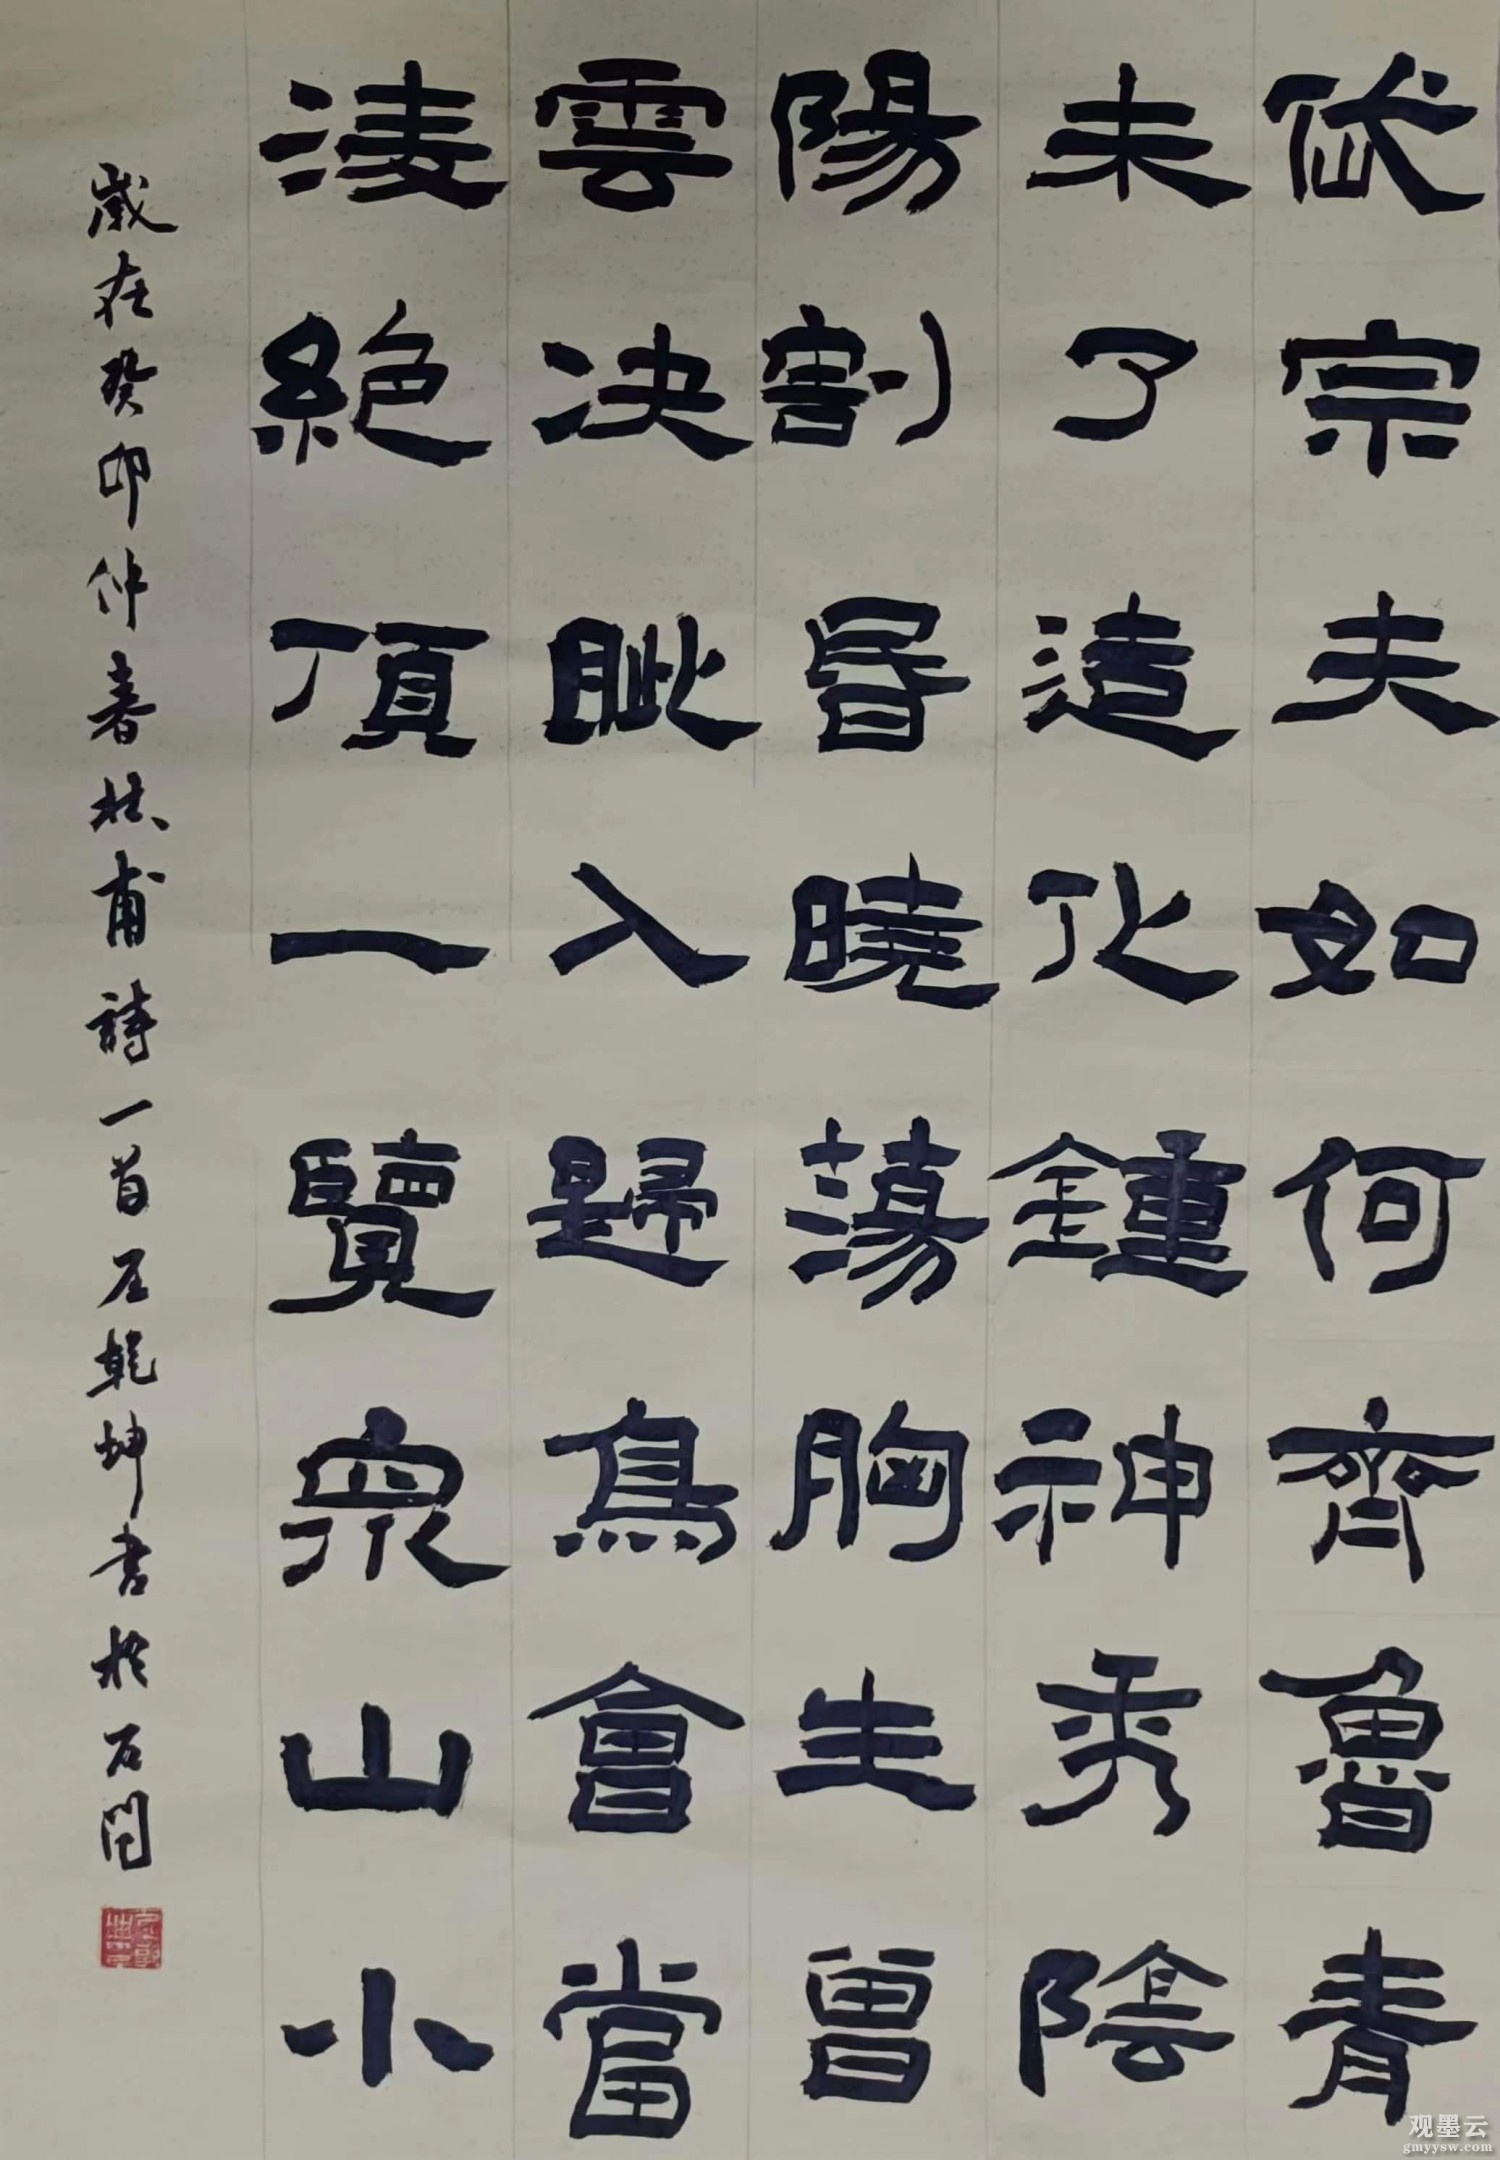 岱宗夫如何齊魯青
未了造化鍾神秀陰
陽割昏曉蕩胸生曾
雲决眦入歸鳥會當
淩絕頂一覽衆山小
歲在癸卯仲春杜甫詩一首乾坤書於石
观墨云
gmyysw.com